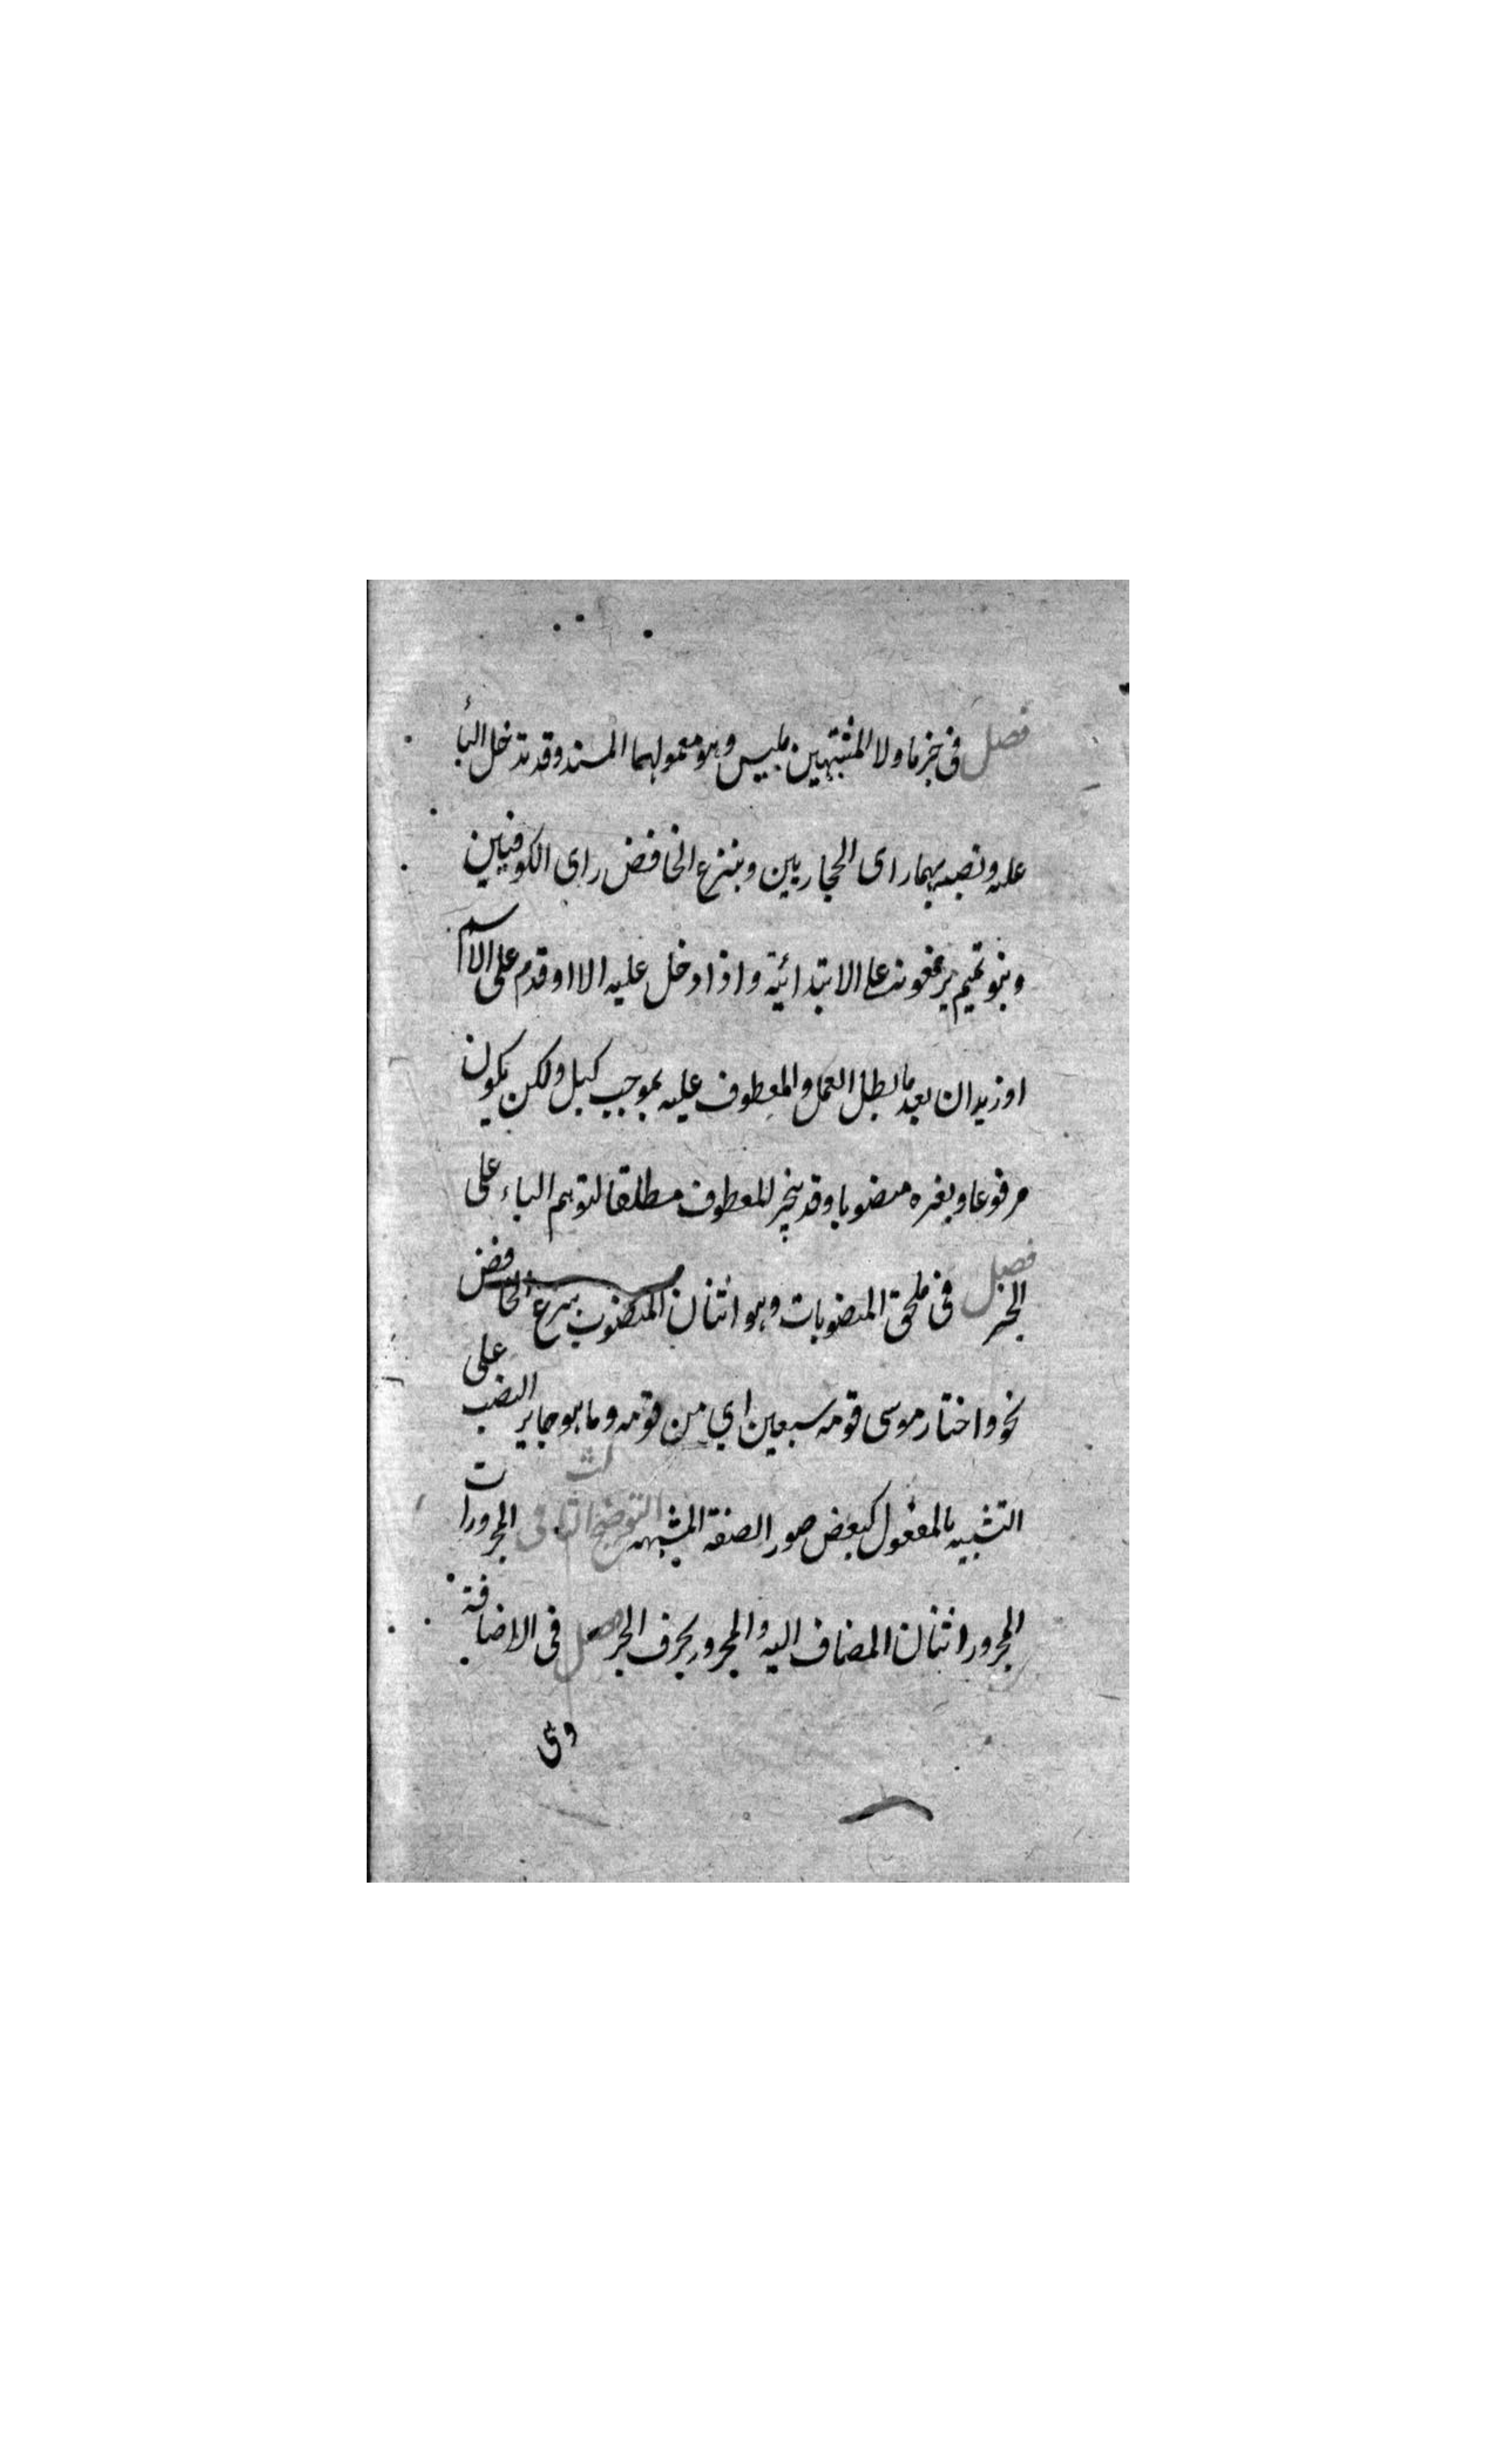 فصل فى خبر ما ولا المشبهتين بليس وهو معمولهما المسند وقد تدخل البأ
عليه ونصبه بهما راى الحجازيين وبنزع الخافض راى الكوفيين
وبنو تميم يرفعونه على الابتدائية واذا دخل عليه الا او قدم على الاسم
او زيد ان بعد ما بطل العمل والمعطوف عليه بموجب كبل ولكن يكون
مرفوعا وبغيره منصوبا وقد ينجر المعطوف مطلقا لتوهم الباء على
الخبر فصل فى ملحق المنصوبات وهو اثنان المنصوب بنزع الخافض
نحو واختار موسى قومه سبعين اي من قومه وما هو جايز النصب على
التشبيه بالمفعول كبعض صور الصفة المشبهه التوضيح الثالث فى المجرورات
المجرور اثنان المضاف اليه والمجرور بحرف الجر فصل فى الاضافة
وهى